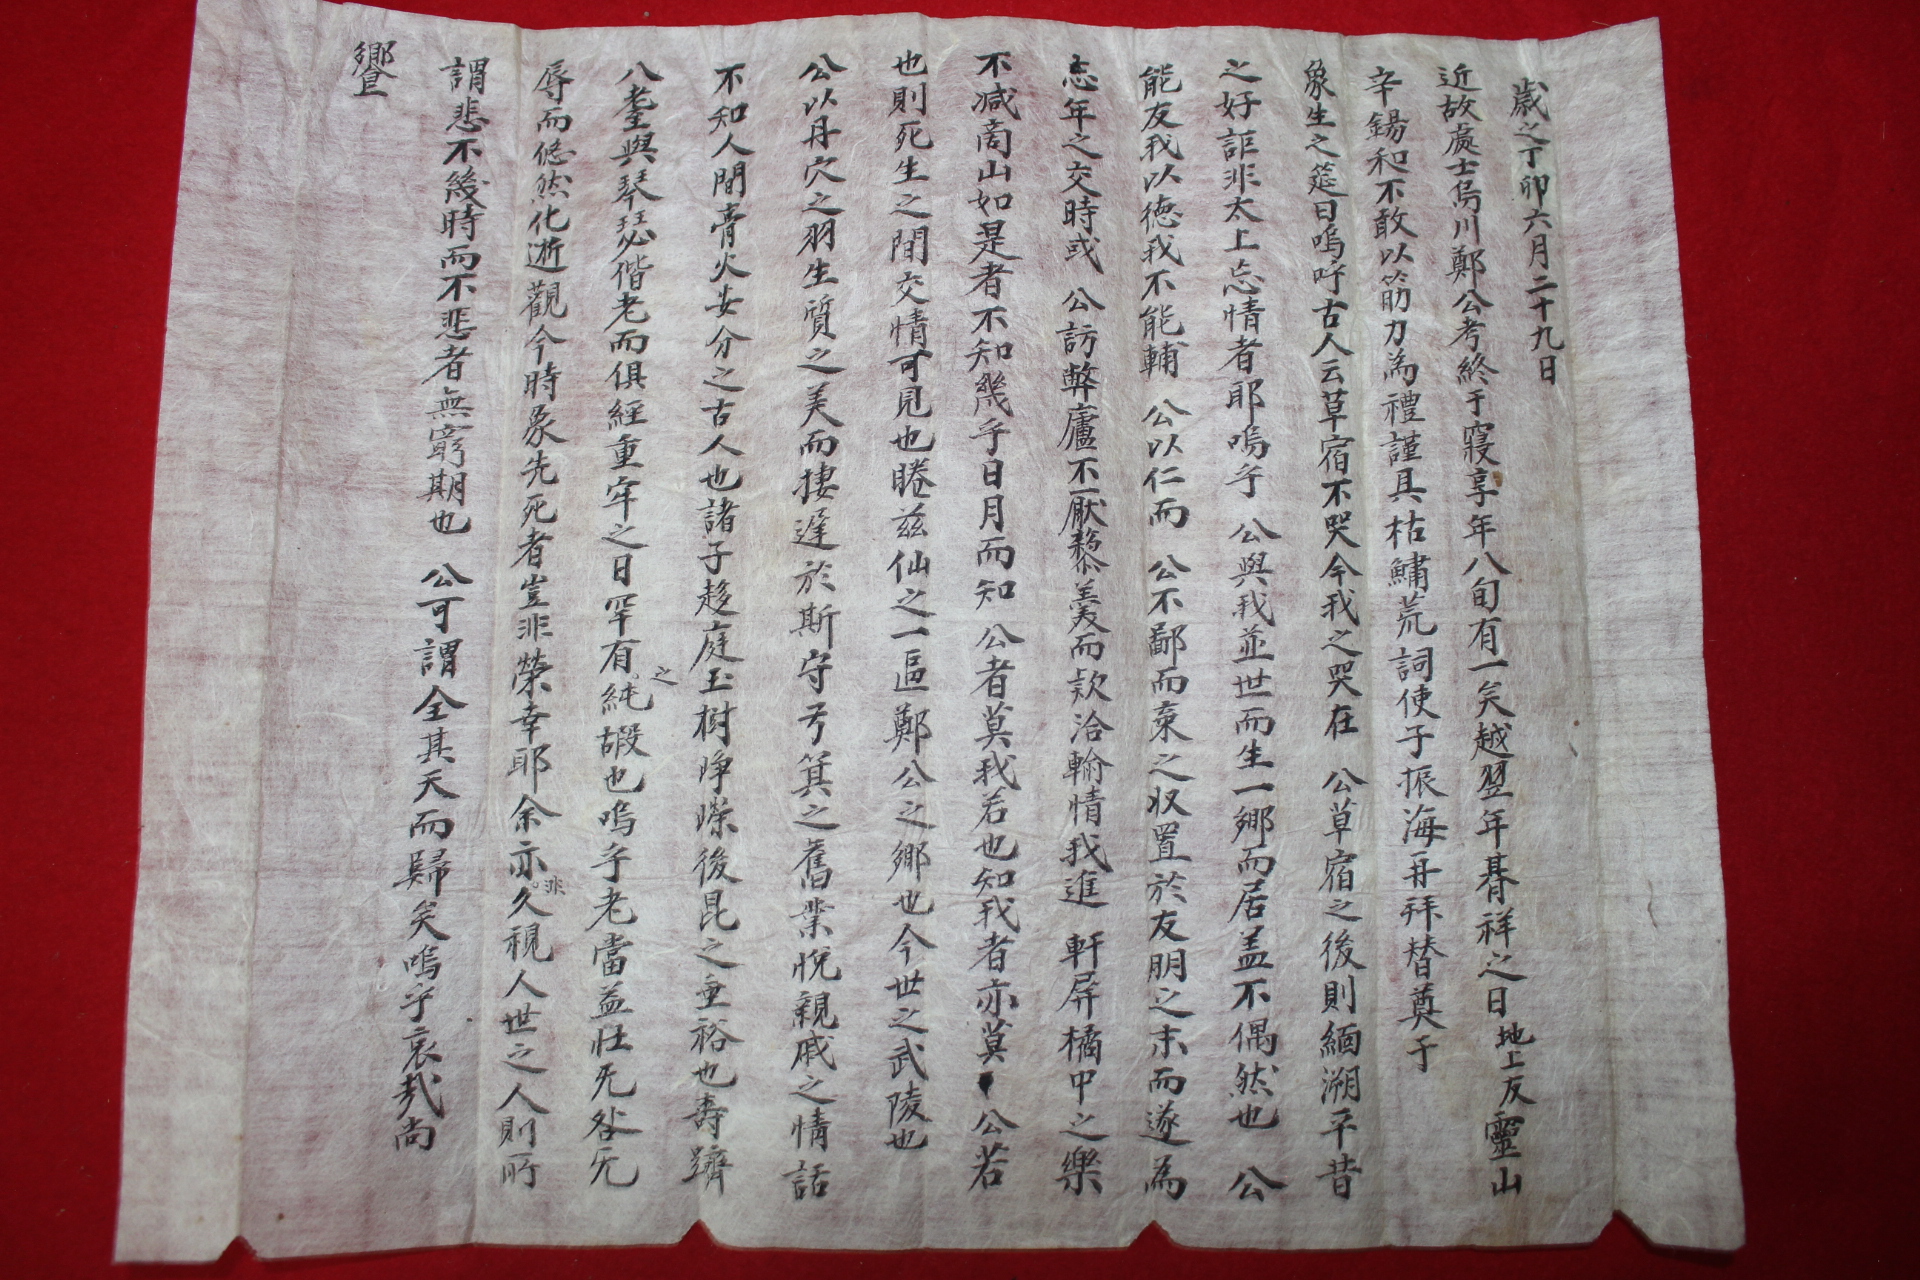 歲之丁卯六月二十九日
近故處士烏川鄭公考終于寢享年八旬有一矣越翌年朞祥之日地上友靈山
辛錫和不敢以筋力為禮謹具枯鱐荒詞使子振海再拜替奠于
象生之筵曰嗚呼古人云草宿不哭今我之哭在 公草宿之後則緬溯平昔
之好詎非太上忘情者耶嗚乎 公與我並世而生一鄉而居盖不偶然也 公
能友我以德我不能輔 公以仁而 公不鄙而棄之収置於友朋之末而遂為
忘年之交時或 公訪弊廬不厭藜羹而款洽輸情我進 軒屏橘中之樂
不减商山如是者不知幾乎日月而知 公者莫我若也知我者亦莫 公若
也則死生之間交情可見也睠玆仙之一區鄭公之鄉也今世之武陵也
公以丹穴之羽生質之美而捿遲於斯守弓箕之舊業悅親戚之情話
不知人間膏火安分之古人也諸子趍庭玉樹崢嶸後昆之垂裕也壽躋
八耋與琴瑟偕老而俱經重牢之日罕有之純嘏也嗚乎老當益壯旡咎旡
辱而悠然化逝觀今時象先死者豈非榮幸耶余亦非久視人世之人則所
謂悲不幾時而不悲者無窮期也 公可謂全其天而歸矣嗚乎哀哉尚
饗